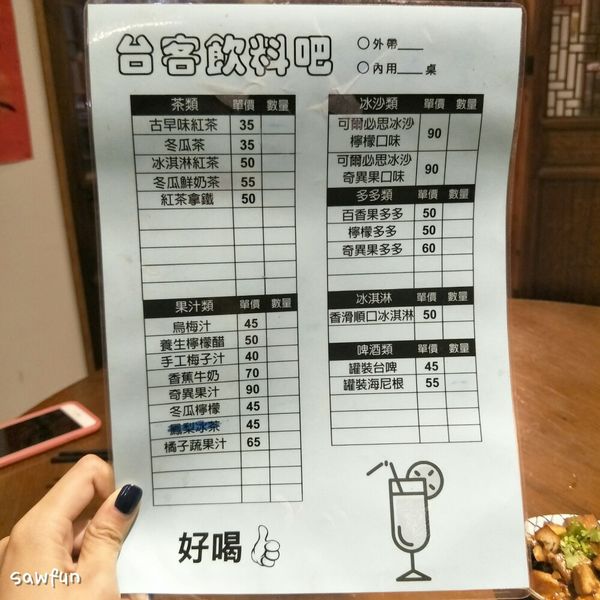 台客飲料吧
○外帶____
○內用____桌
茶類 單價 數量
古早味紅茶 35
冬瓜茶 35
冰淇淋紅茶 50
冬瓜鮮奶茶 55
紅茶拿鐵 50
果汁類 單價 數量
烏梅汁 45
養生檸檬醋 50
手工梅子汁 40
香蕉牛奶 70
奇異果汁 90
冬瓜檸檬 45
鳳梨冰茶 45
橘子蔬果汁 65
冰沙類 單價 數量
可爾必思冰沙
檸檬口味 90
可爾必思冰沙
奇異果口味 90
多多類 單價 數量
百香果多多 50
檸檬多多 50
奇異果多多 60
冰淇淋 單價 數量
香滑順口冰淇淋 50
啤酒類 單價 數量
罐裝台啤 45
罐裝海尼根 55
好喝
sawfun